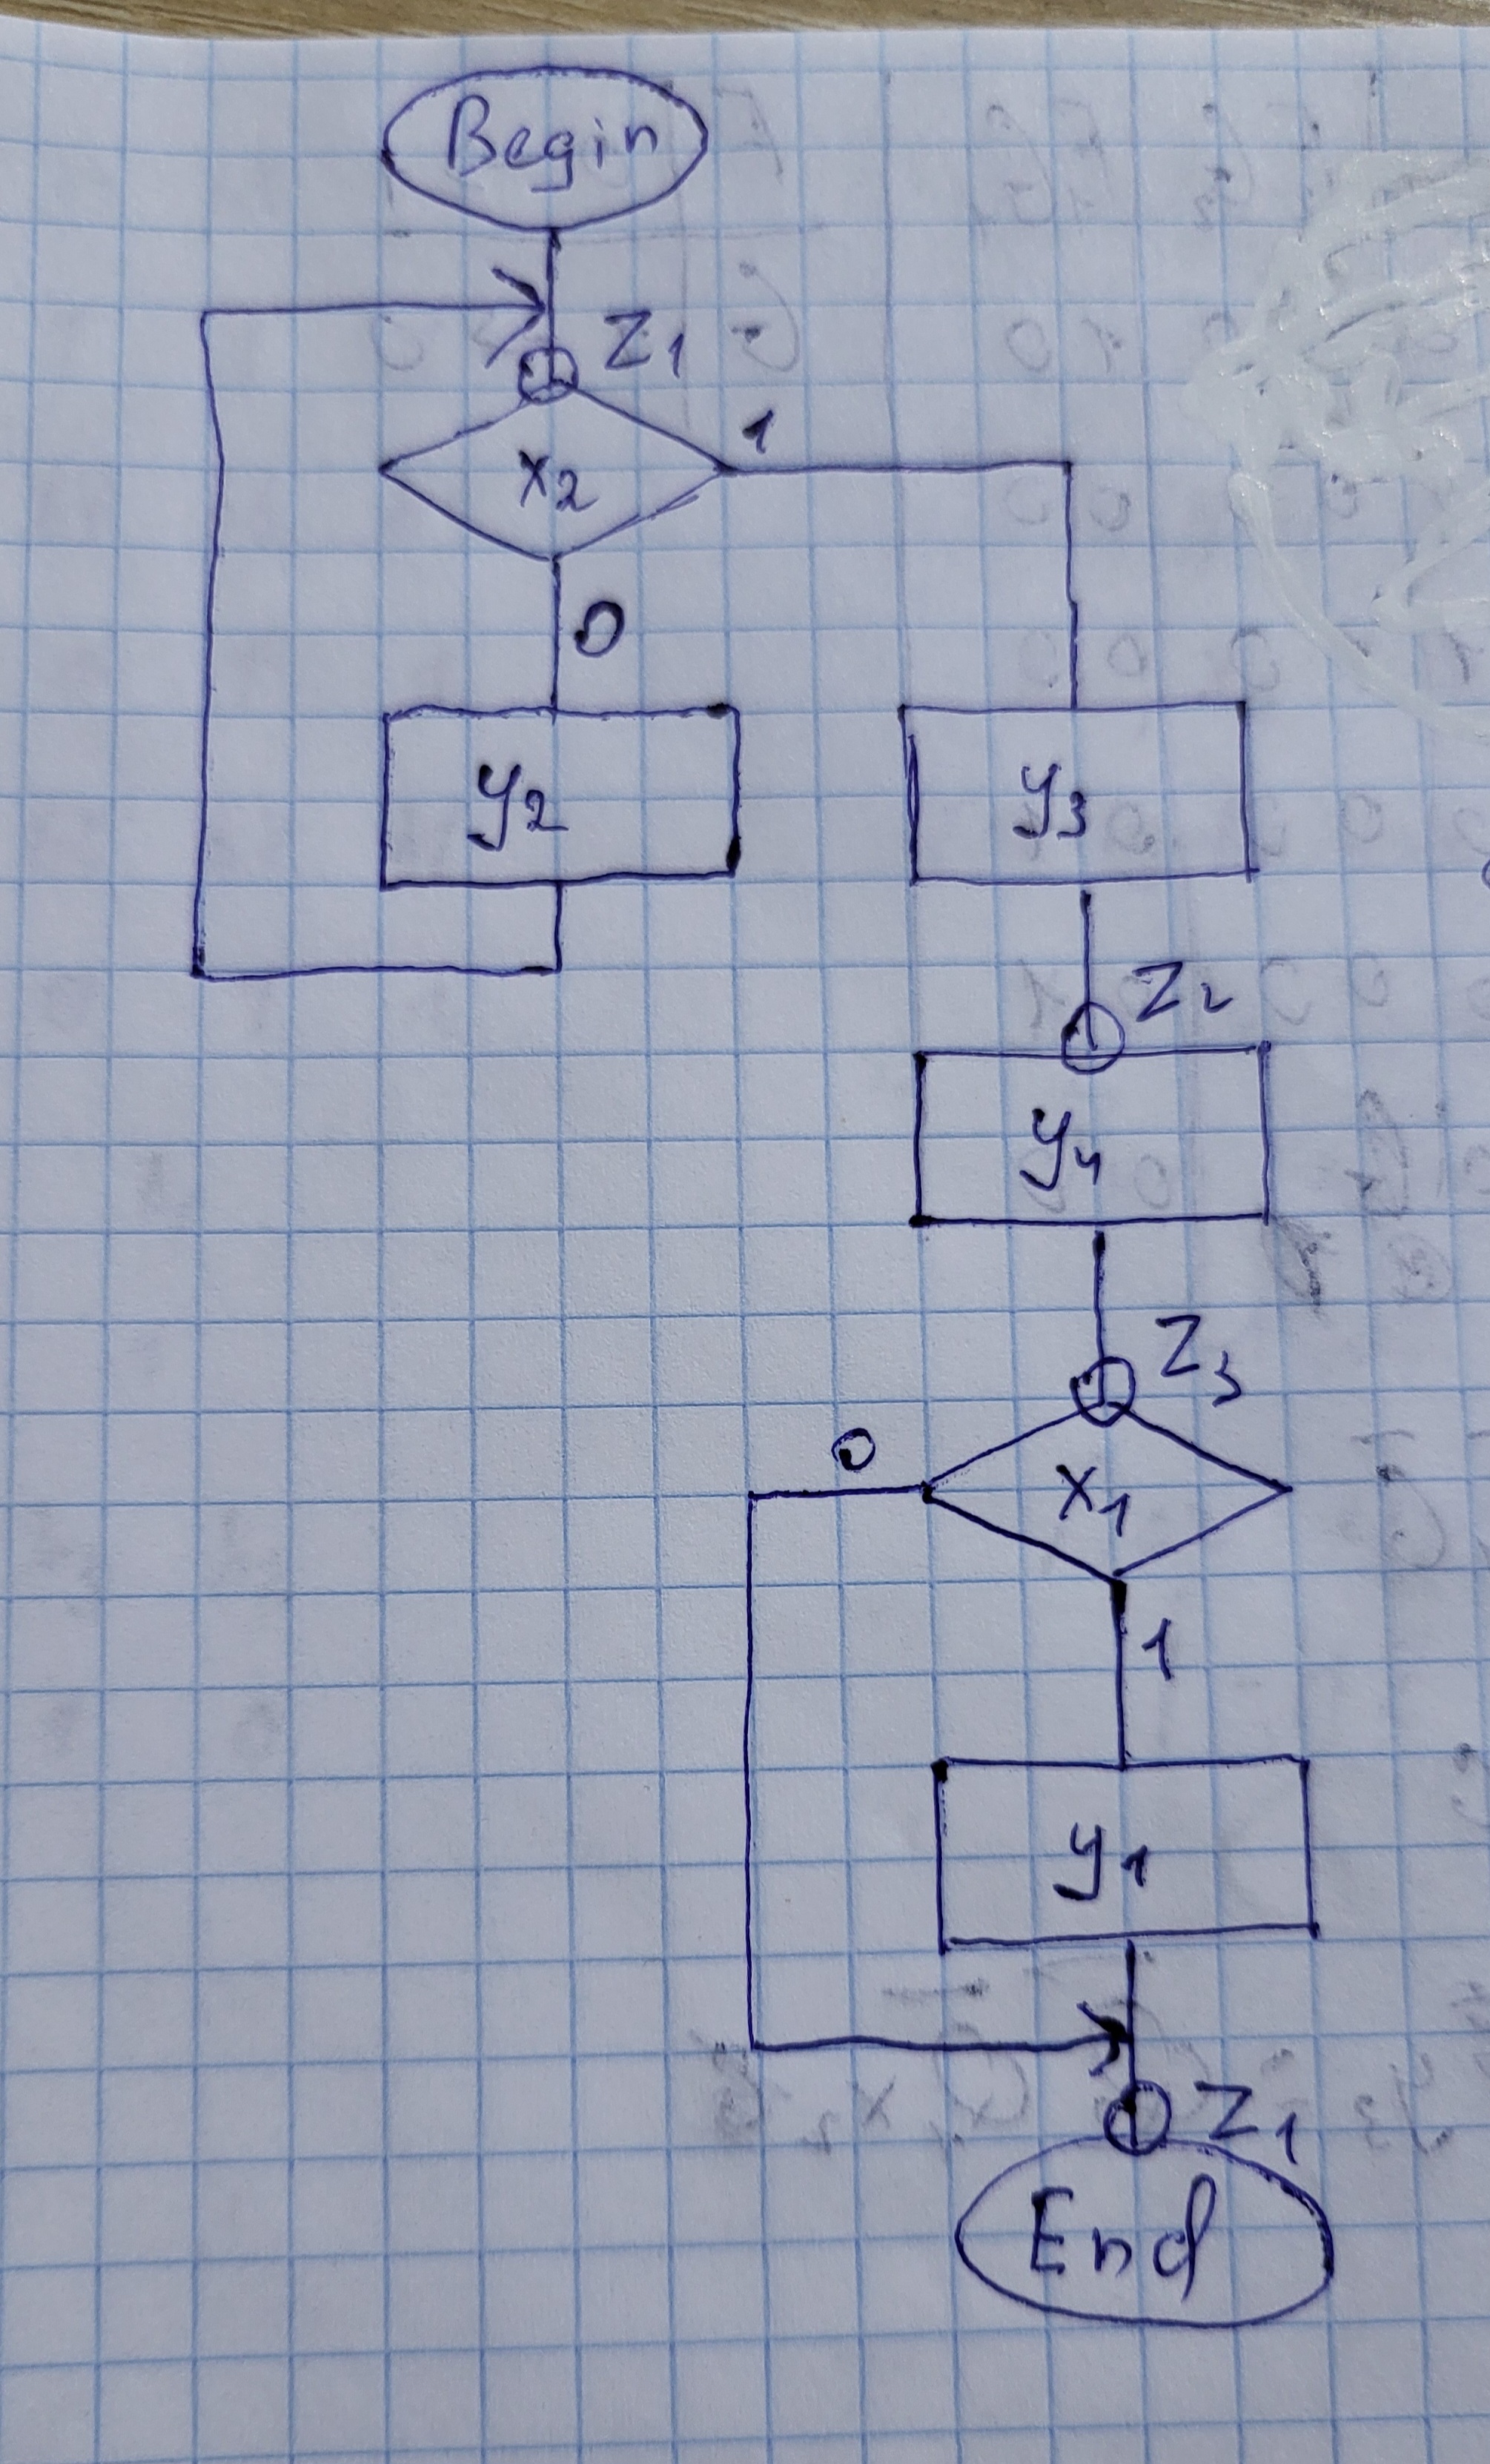 Begin
Z1
1
x2
0
y2
y3
Z2
y4
Z3
0
x1
1
y1
Z1
End